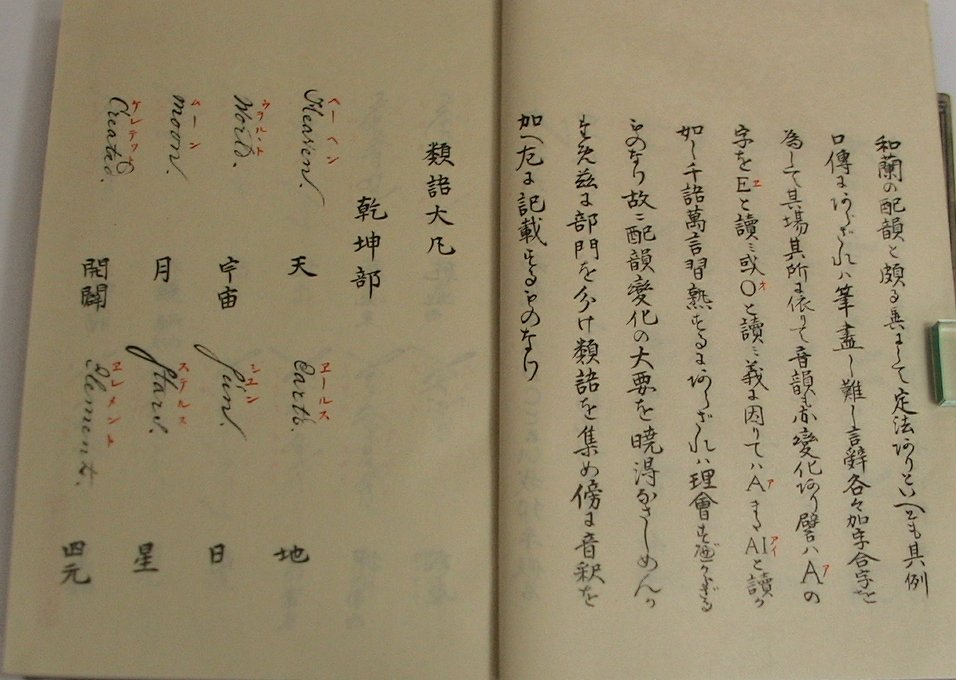 和蘭の配韻と頗る異にして定法ありといへとも其例
口傳にあらざれハ筆盡し難し言辭各々加字合字を
為して其場其所に依りて音韻も亦変化あり譬ハAアの
字をEエと讀ミ或Oオと讀ミ義に因りてハAアまたAIアイと讀か
如し千語萬言習熟するにあらざれハ理會すべからざる
ものなり故ニ配韻變化の大要を曉得なさしめんか
為茲に部門を分け類語を集め傍に音釈を
加へ左に記載するものなり
類語大凡
乾坤部
Heaven. ヘーヘン 天 Earth. エールス 地
World. ウヲルルト 宇宙 Sun. シュン 日
moon. ムーン 月 Stars. ステルス 星
Created. ケレテット 開闢 Element. エレメント 四元